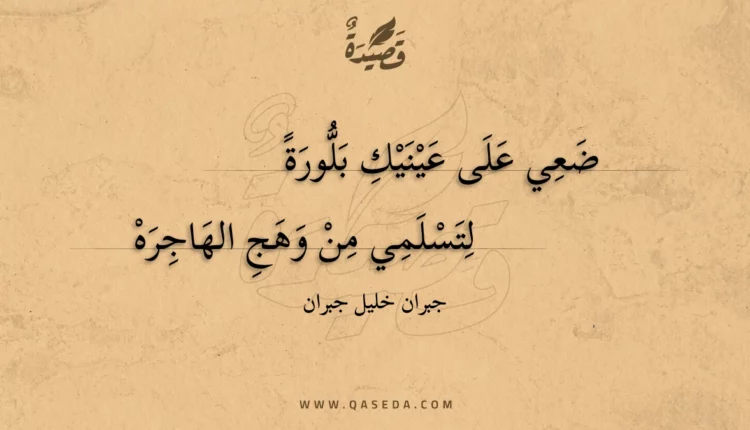 قَصِيدَةٌ
ضَعِي عَلَى عَيْنَيْكِ بَلُّورَةً
لِتَسْلَمِي مِنْ وَهَجِ الهَاجِرَهْ
جبران خليل جبران
WWW.QASEDA.COM